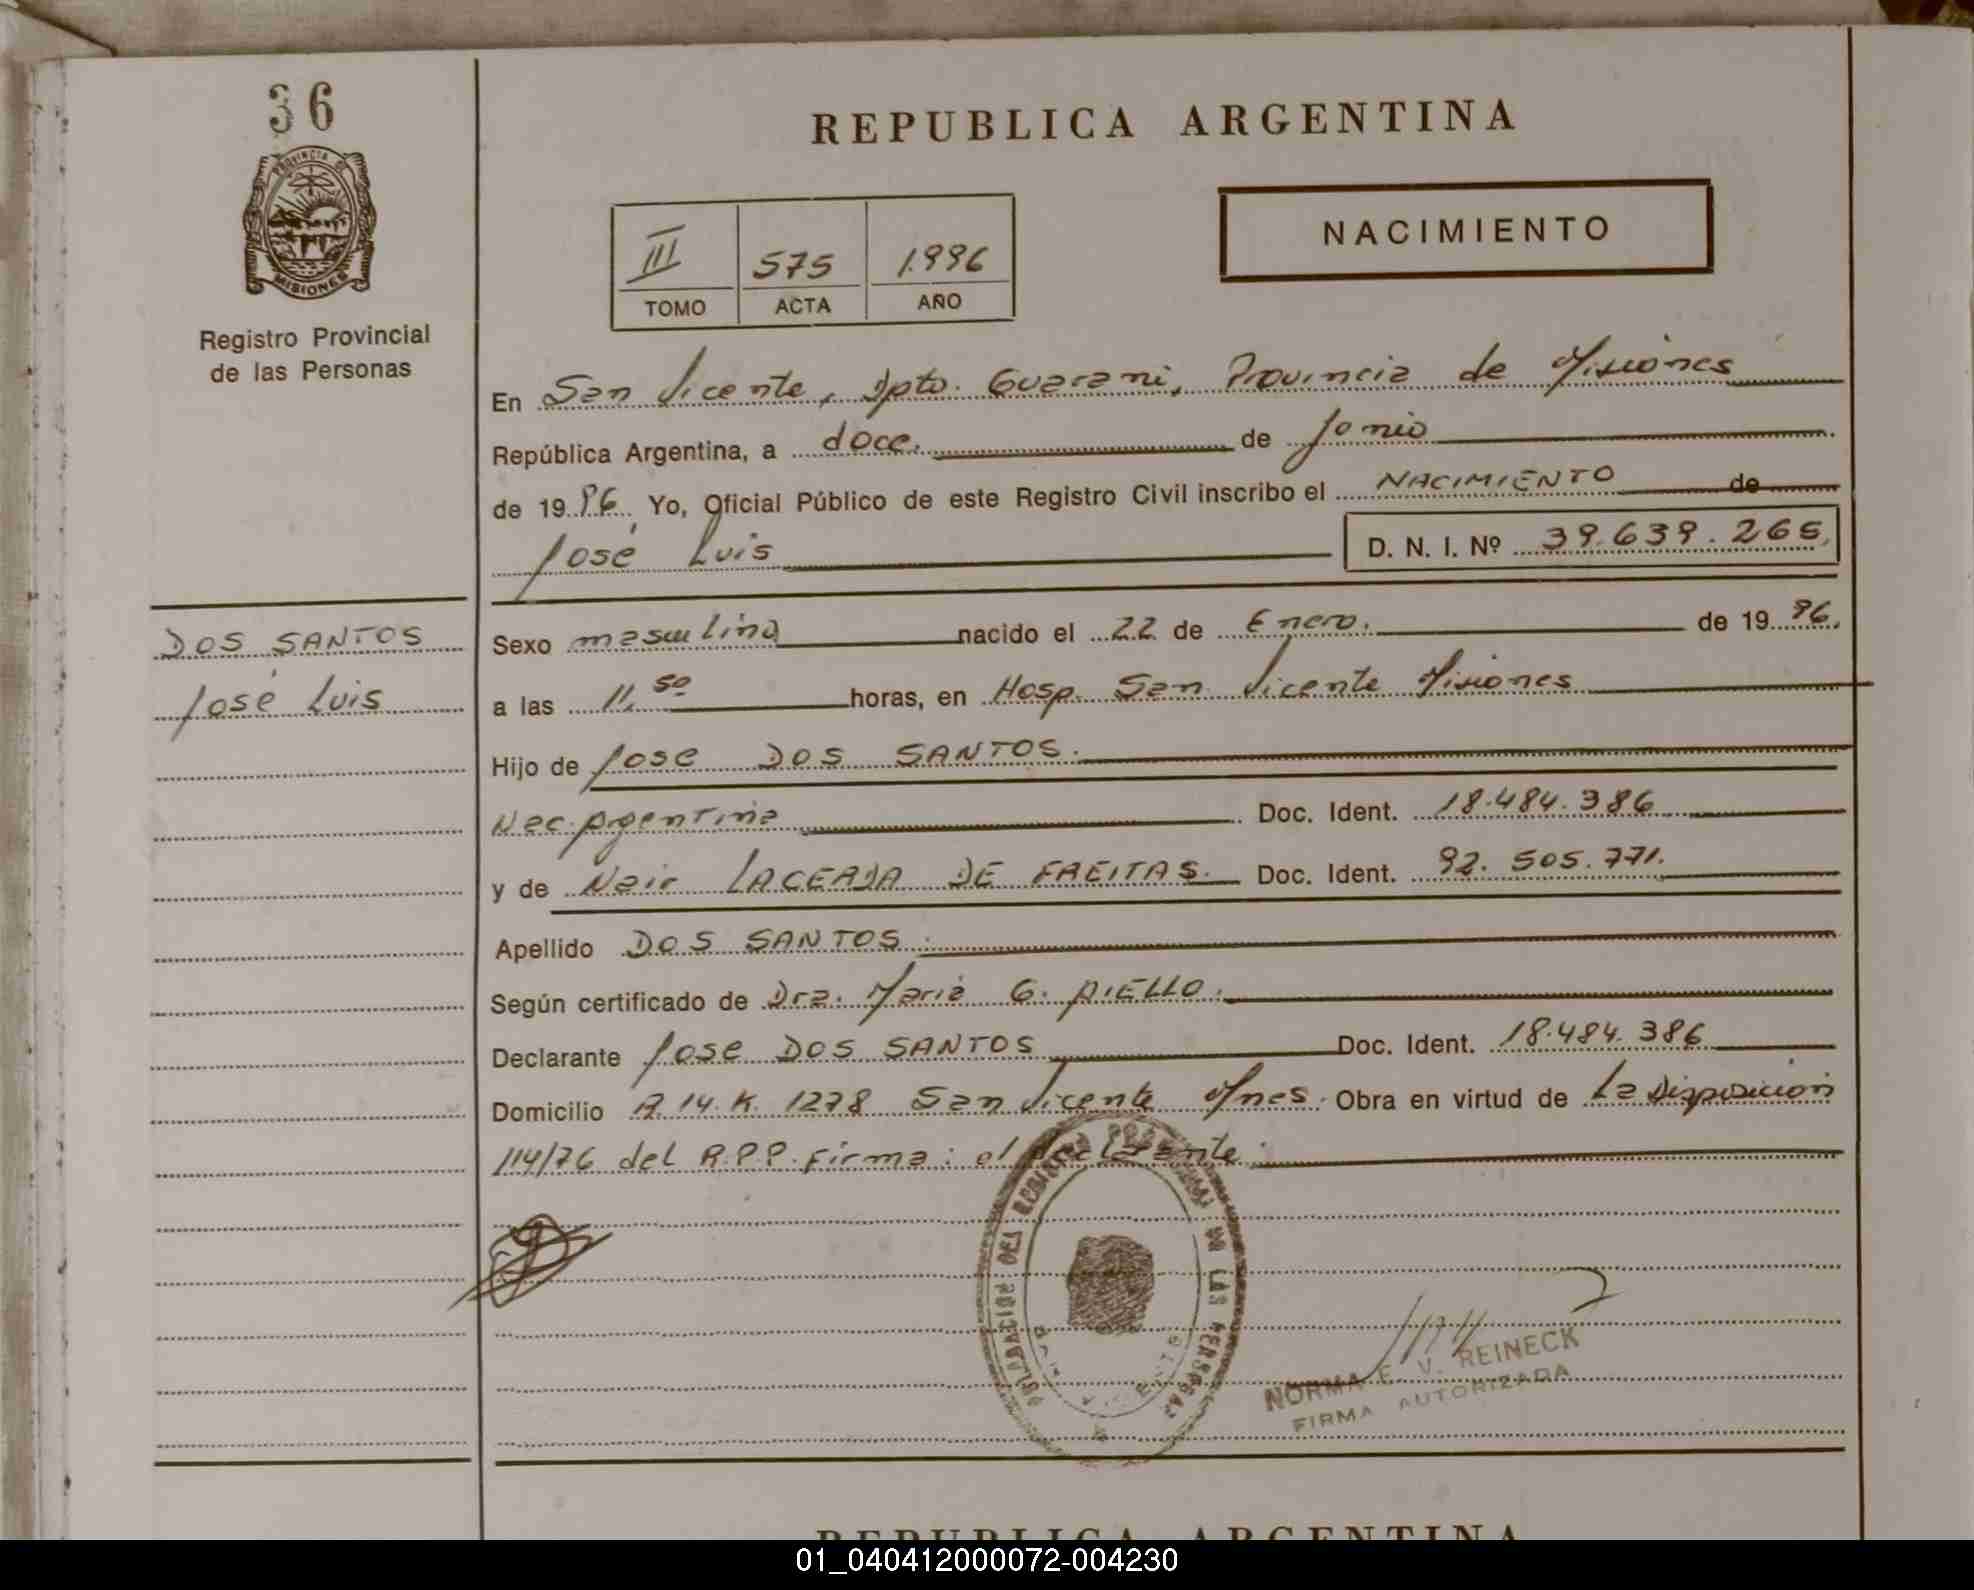 36
REPUBLICA ARGENTINA
PROVINCIA DE
MISIONES
NACIMIENTO
III 575 1.996
TOMO ACTA AÑO
Registro Provincial
de las Personas
En San Vicente, Dpto. Guarani, Provincia de Misiones
República Argentina, a doce. de Junio
de 1996, Yo, Oficial Público de este Registro Civil inscribo el NACIMIENTO de
José Luis D. N. I. Nº 39.639.265,
DOS SANTOS
José Luis
Sexo masculino nacido el 22 de Enero. de 1996.
a las 11,50 horas, en Hosp. San Vicente Misiones
Hijo de Jose DOS SANTOS.
Nac. Argentina Doc. Ident. 18.484.386
y de Nair LACERDA DE FREITAS. Doc. Ident. 92.505.771.
Apellido DOS SANTOS.
Según certificado de Dra. Maria G. AIELLO.
Declarante Jose DOS SANTOS Doc. Ident. 18.484.386
Domicilio R.14.K. 1278 San Vicente Mnes. Obra en virtud de La Disposición
114/76 del R.P.P. Firma: el declarante.
DELEGACION DEL REGISTRO PROVINCIAL DE LAS PERSONAS
NORMA E. V. REINECK
FIRMA AUTORIZADA
REPUBLICA ARGENTINA
01_040412000072-004230